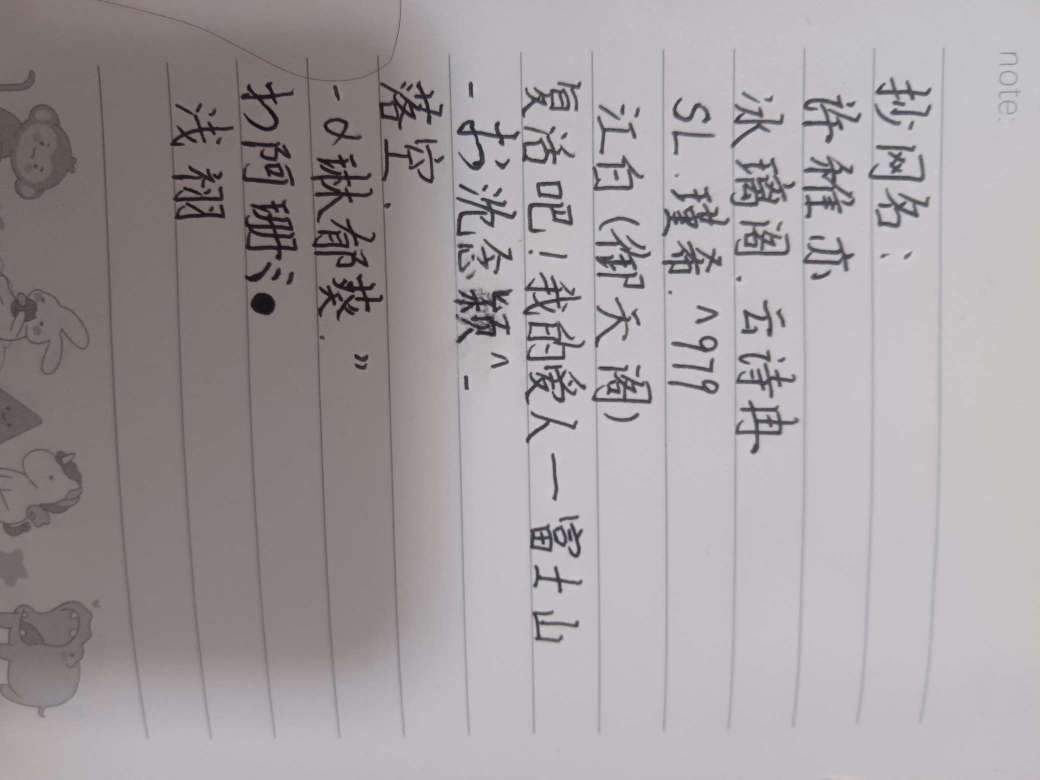 note:
抄网名:
许稚亦
冰璃阁.云诗冉
SL.瑾希.^979
江白(御天阁)
复活吧!我的爱人一富士山
-お沈念颖^-
落空.
-d琳郁葵."
わ阿珊氵●
浅翎